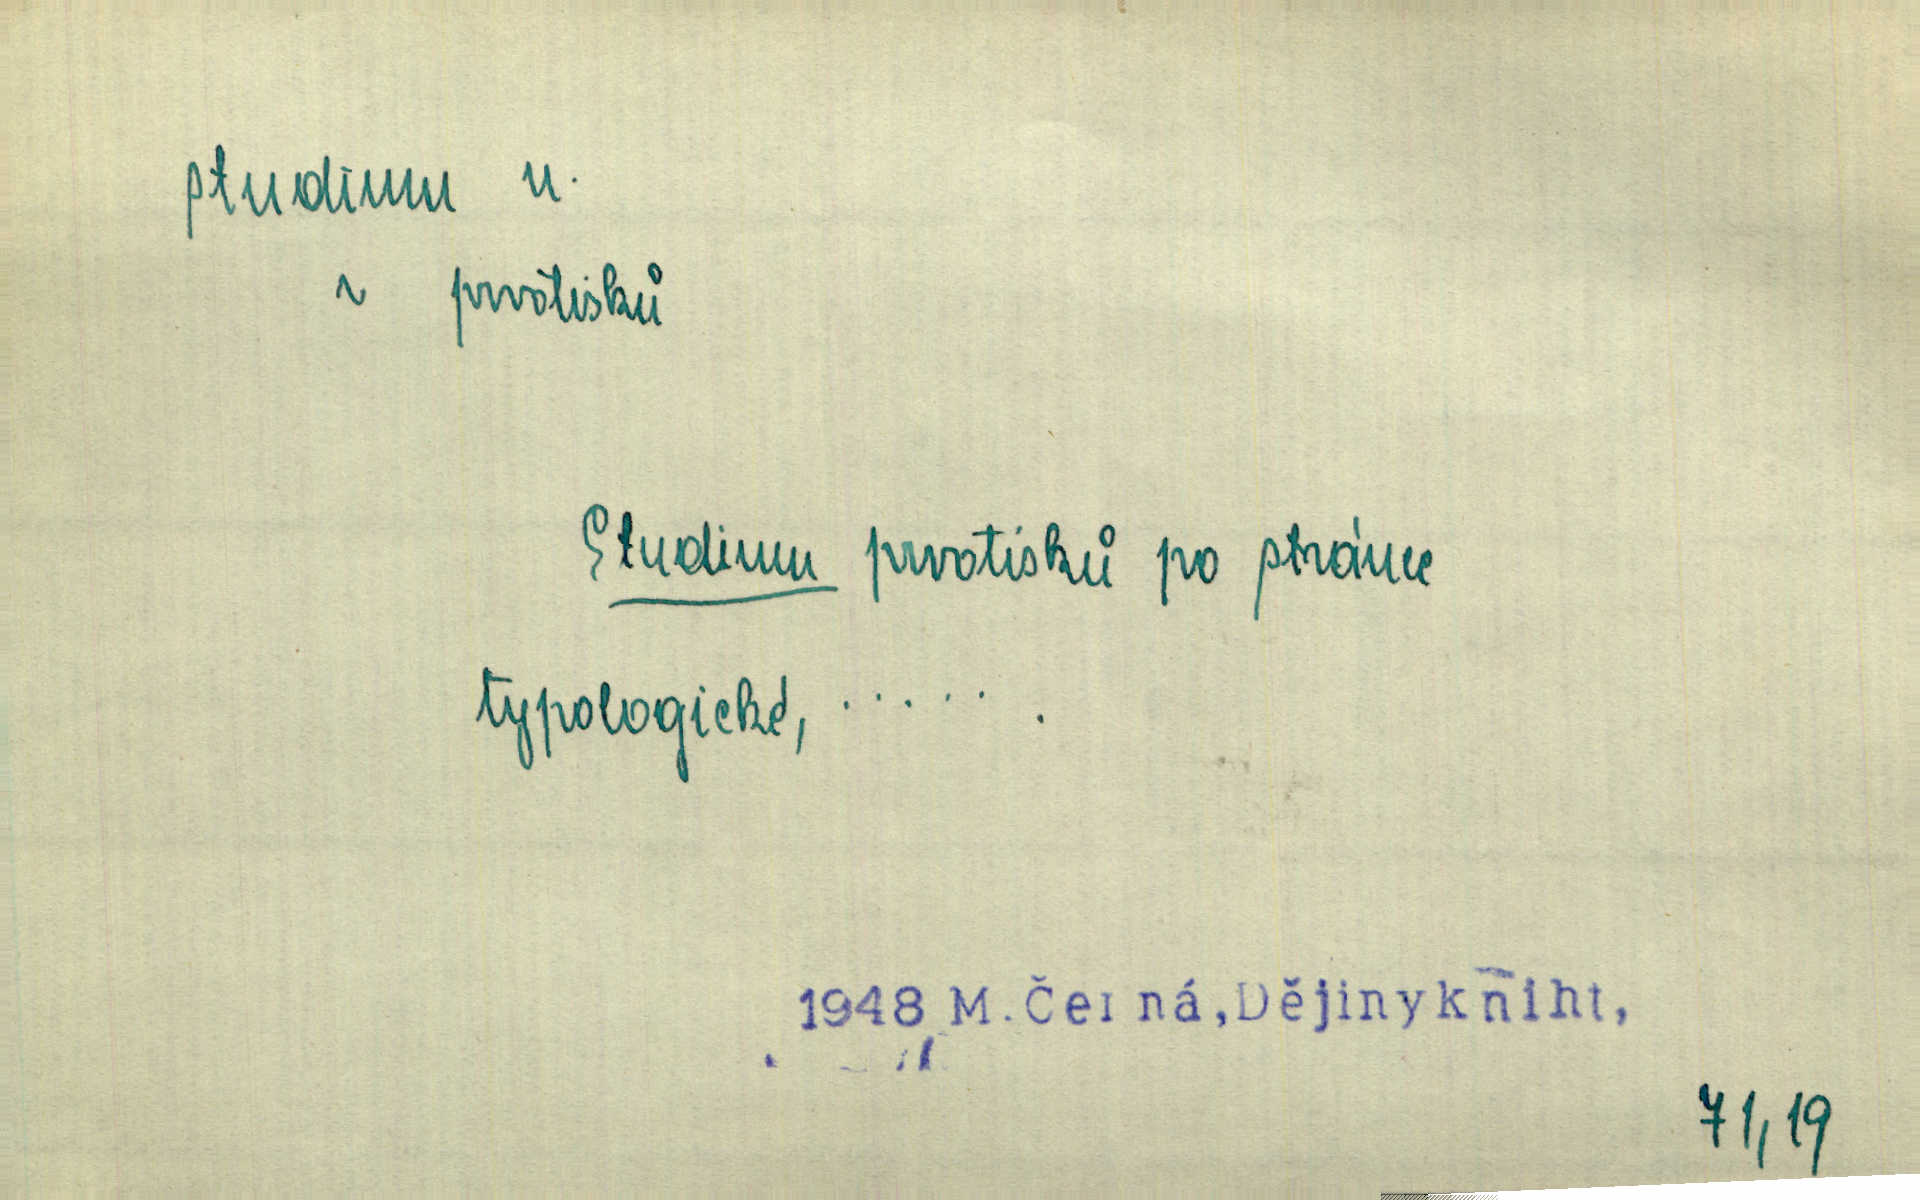 studium n.
~ prvotisků
Studium prvotisků po stránce
typologické, ..... .
1948 M.Černá,Dějiny kniht,
71,19